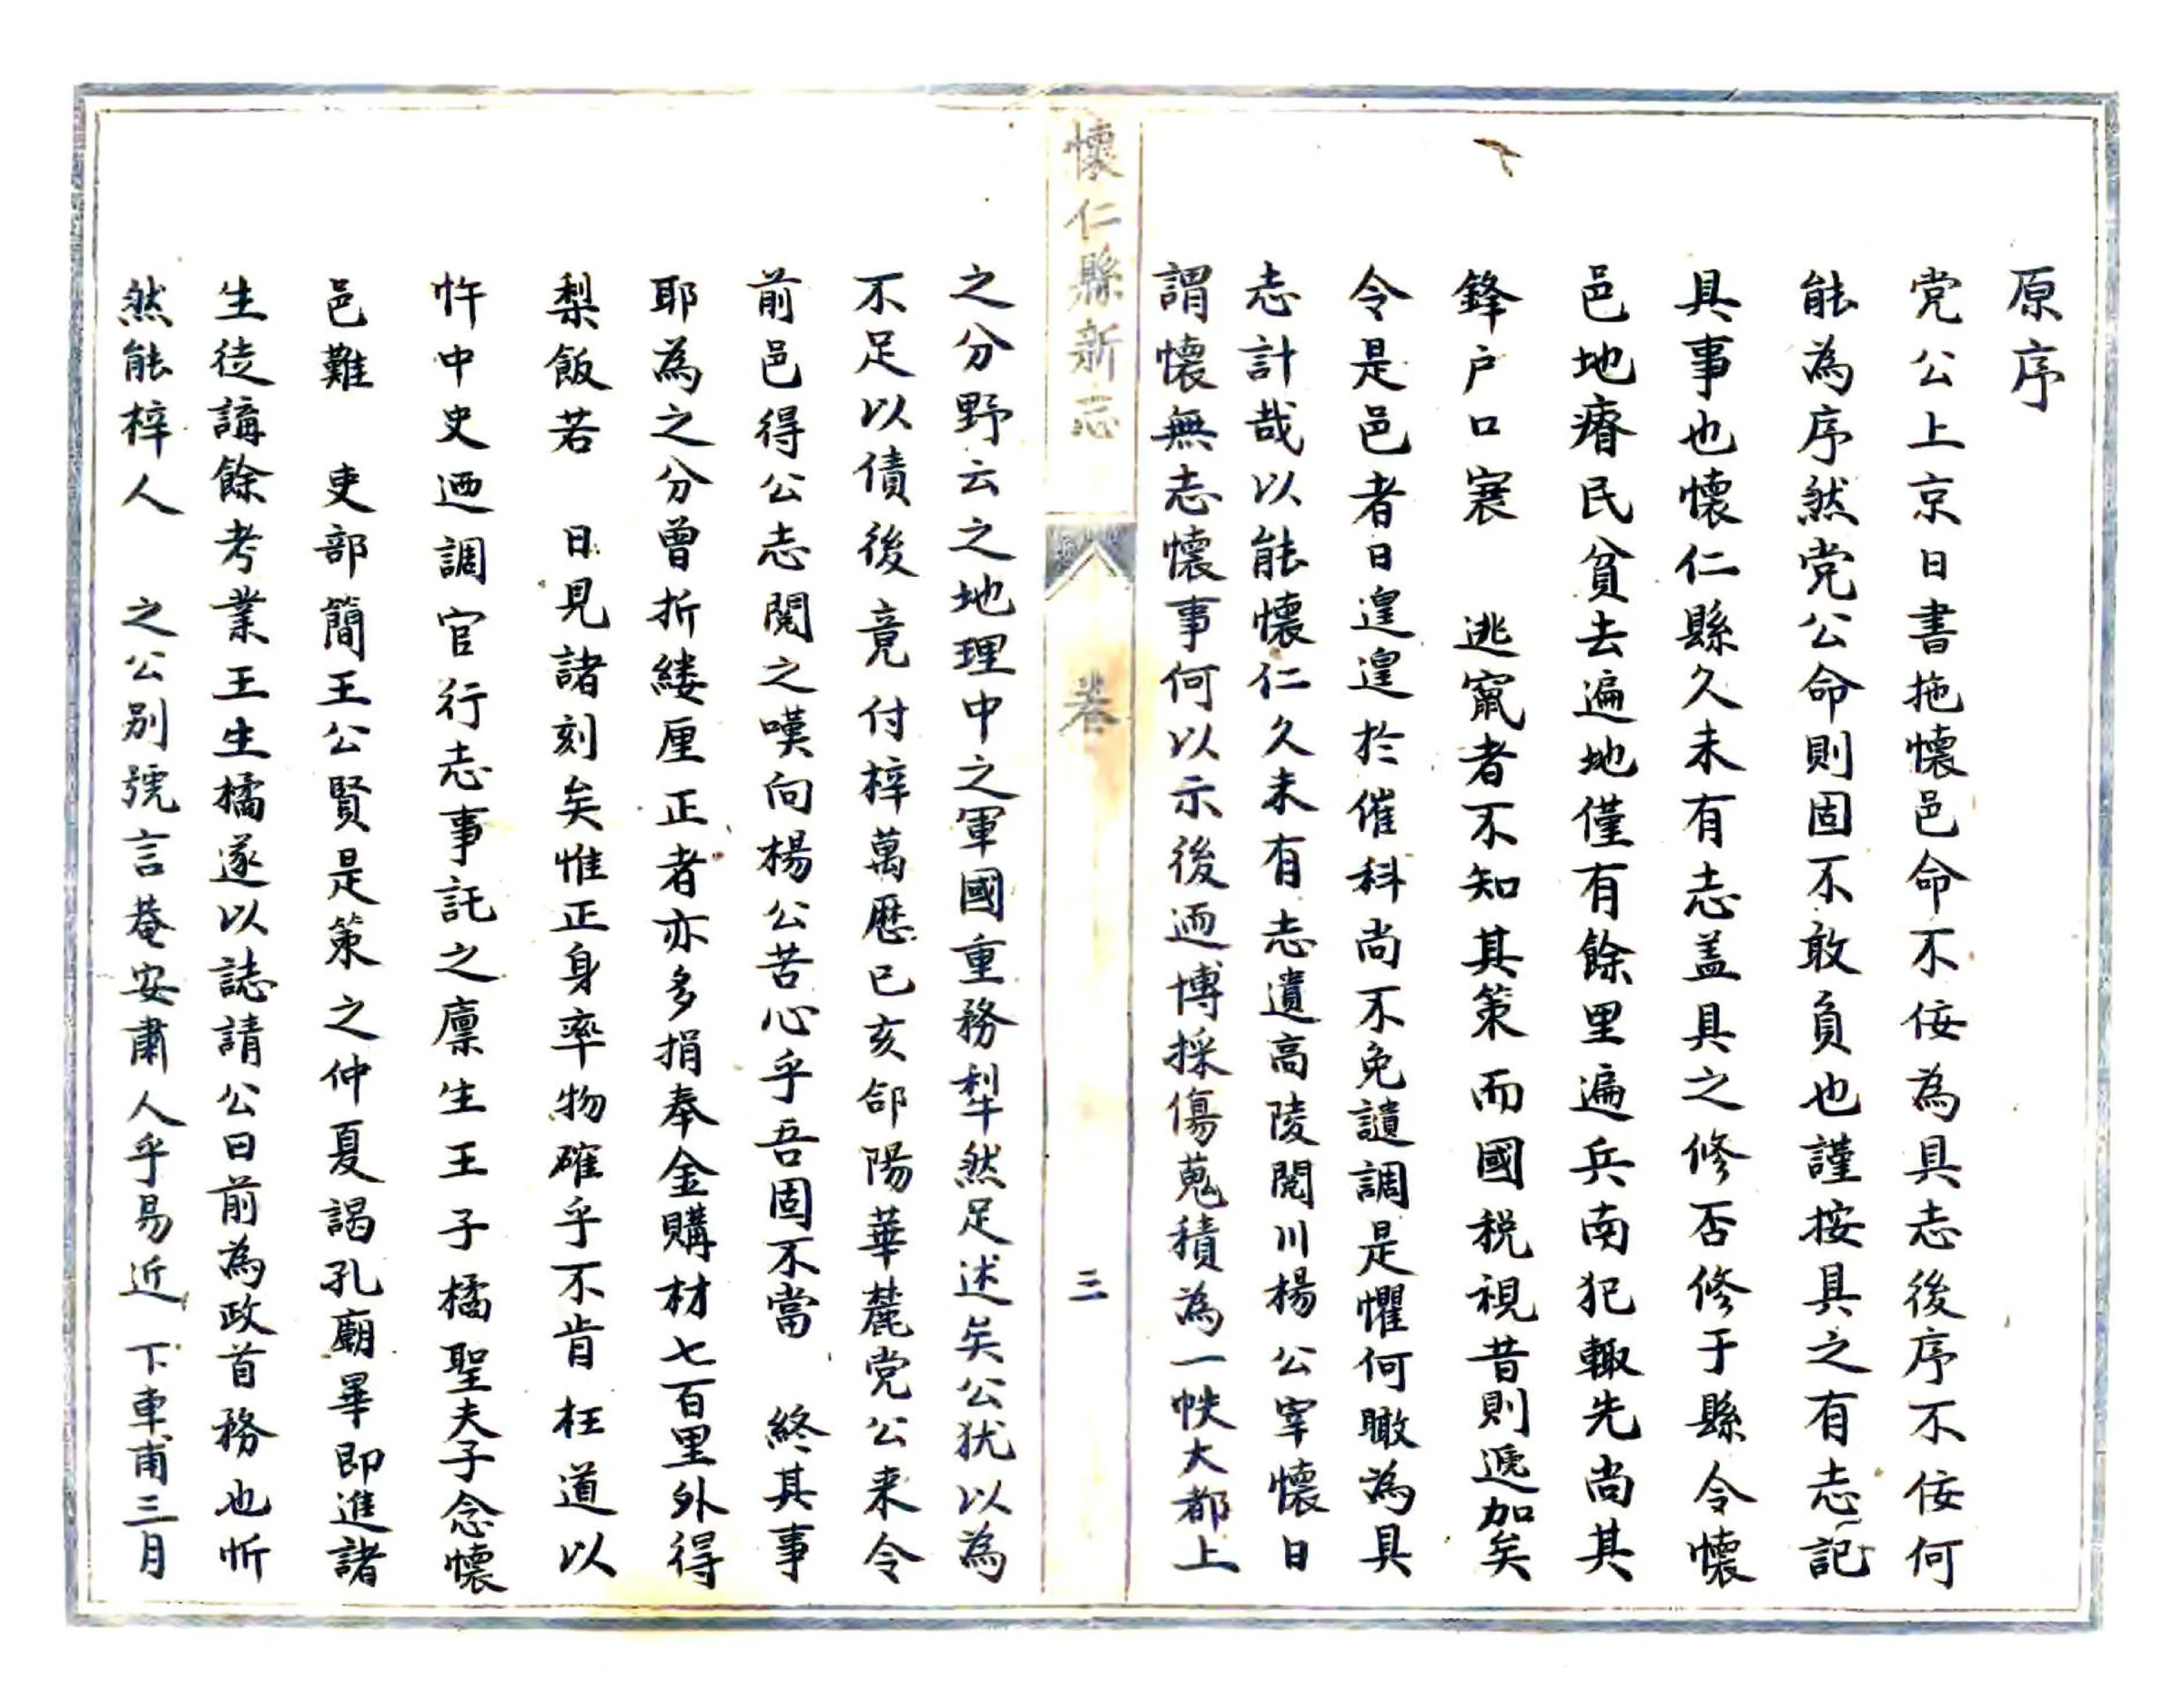 原序
党公上京日書拖懷邑命不佞為具志後序不佞何
能為序然党公命則固不敢負也謹按具之有志記
具事也懷仁縣久未有志盖具之修否修于縣令懷
邑地瘠民貧去遍地僅有餘里遍兵南犯輙先尚其
鋒户口寰 逃竄者不知其策而國税視昔則遞加矣
令是邑者日遑遑於催科尚不免譴調是懼何瞰為具
志計哉以能懷仁久未有志遺高陵閱川楊公宰懷日
謂懷無志懷事何以示後迺博採傷蒐積為一帙大都上
懷仁縣新志 卷 三
之分野云之地理中之軍國重務犁然足述矣公犹以為
不足以債後竟付梓萬歷已亥郃陽華麓党公来令
前邑得公志閱之嘆向楊公苦心乎吾固不當 終其事
耶為之分曾折縷厘正者亦多捐奉金購材七百里外得
梨飯若 日見諸刻矣惟正身率物確乎不肯枉道以
忤中史迺調官行志事託之廪生王子橘聖夫子念懷
邑難 吏部簡王公賢是策之仲夏謁孔廟畢即進諸
生徒講餘考業王生橘遂以誌請公曰前為政首務也忻
然能梓人 之公别號言菴安肅人乎易近 下車甫三月